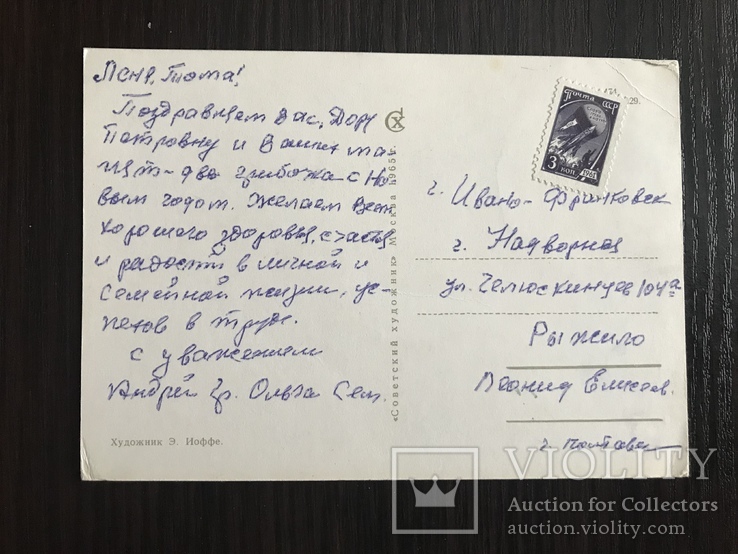 Лёня, Тома!
Поздравляем вас, Дору
Петровну и Ваших та
с Но
вым годом. Желаем Вам
хорошего здоровья, счастья
и радости в личной и
семейной жизни, ус-
пехов в труде.
С уважением
Андрей Гр. Ольга Сем.
Художник Э. Иоффе.
«Советский художник» Москва 1965 г.
Почта СССР
3 коп
1961
29.
г. Ивано-Франковск
г. Надворная
ул. Челюскинцев 104а
Рыжило
Леонид Елисеев.
г. Полтава
VIOLITY
Auction for Collectors
auction.violity.com